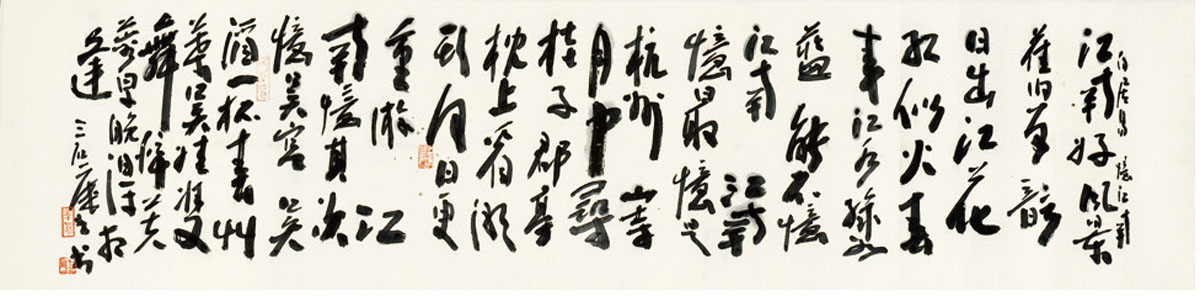 白居易 憶江南
江南好風景
舊曾諳
日出江花
紅似火春
來江水綠如
藍能不憶
江南 江南
憶最憶是
杭州山寺
月中尋
桂子郡亭
枕上看潮
頭何日更
重游 江
南憶其次
憶吳宮吳
酒一杯春竹
葉吳娃雙
舞醉芙
蓉早晚復相
逢 書